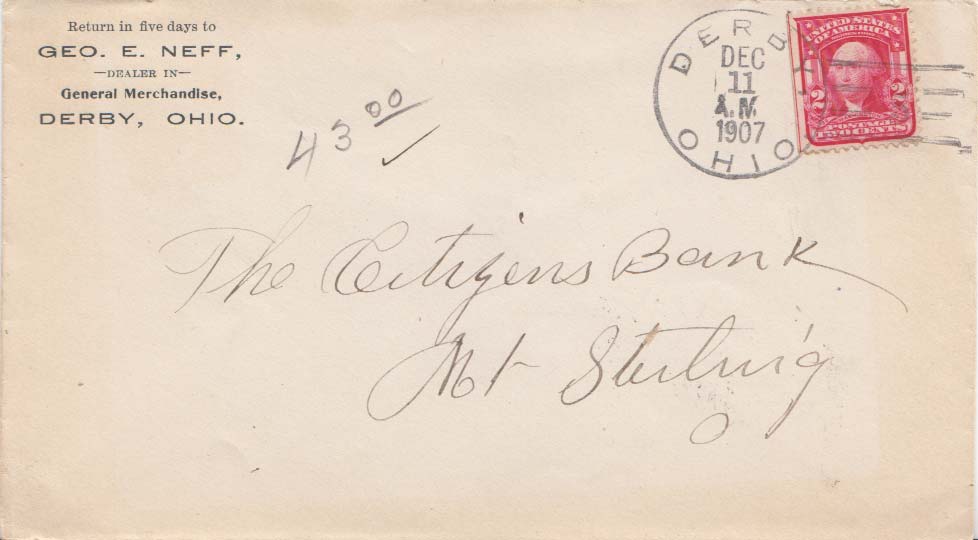 Return in five days to
GEO. E. NEFF,
—DEALER IN—
General Merchandise,
DERBY, OHIO.
43 00 ✓
DERBY
DEC
11
A.M.
1907
OHIO
UNITED STATES
OF AMERICA
2 2
POSTAGE
TWO CENTS
The Citizens Bank
Mt Sterling
O